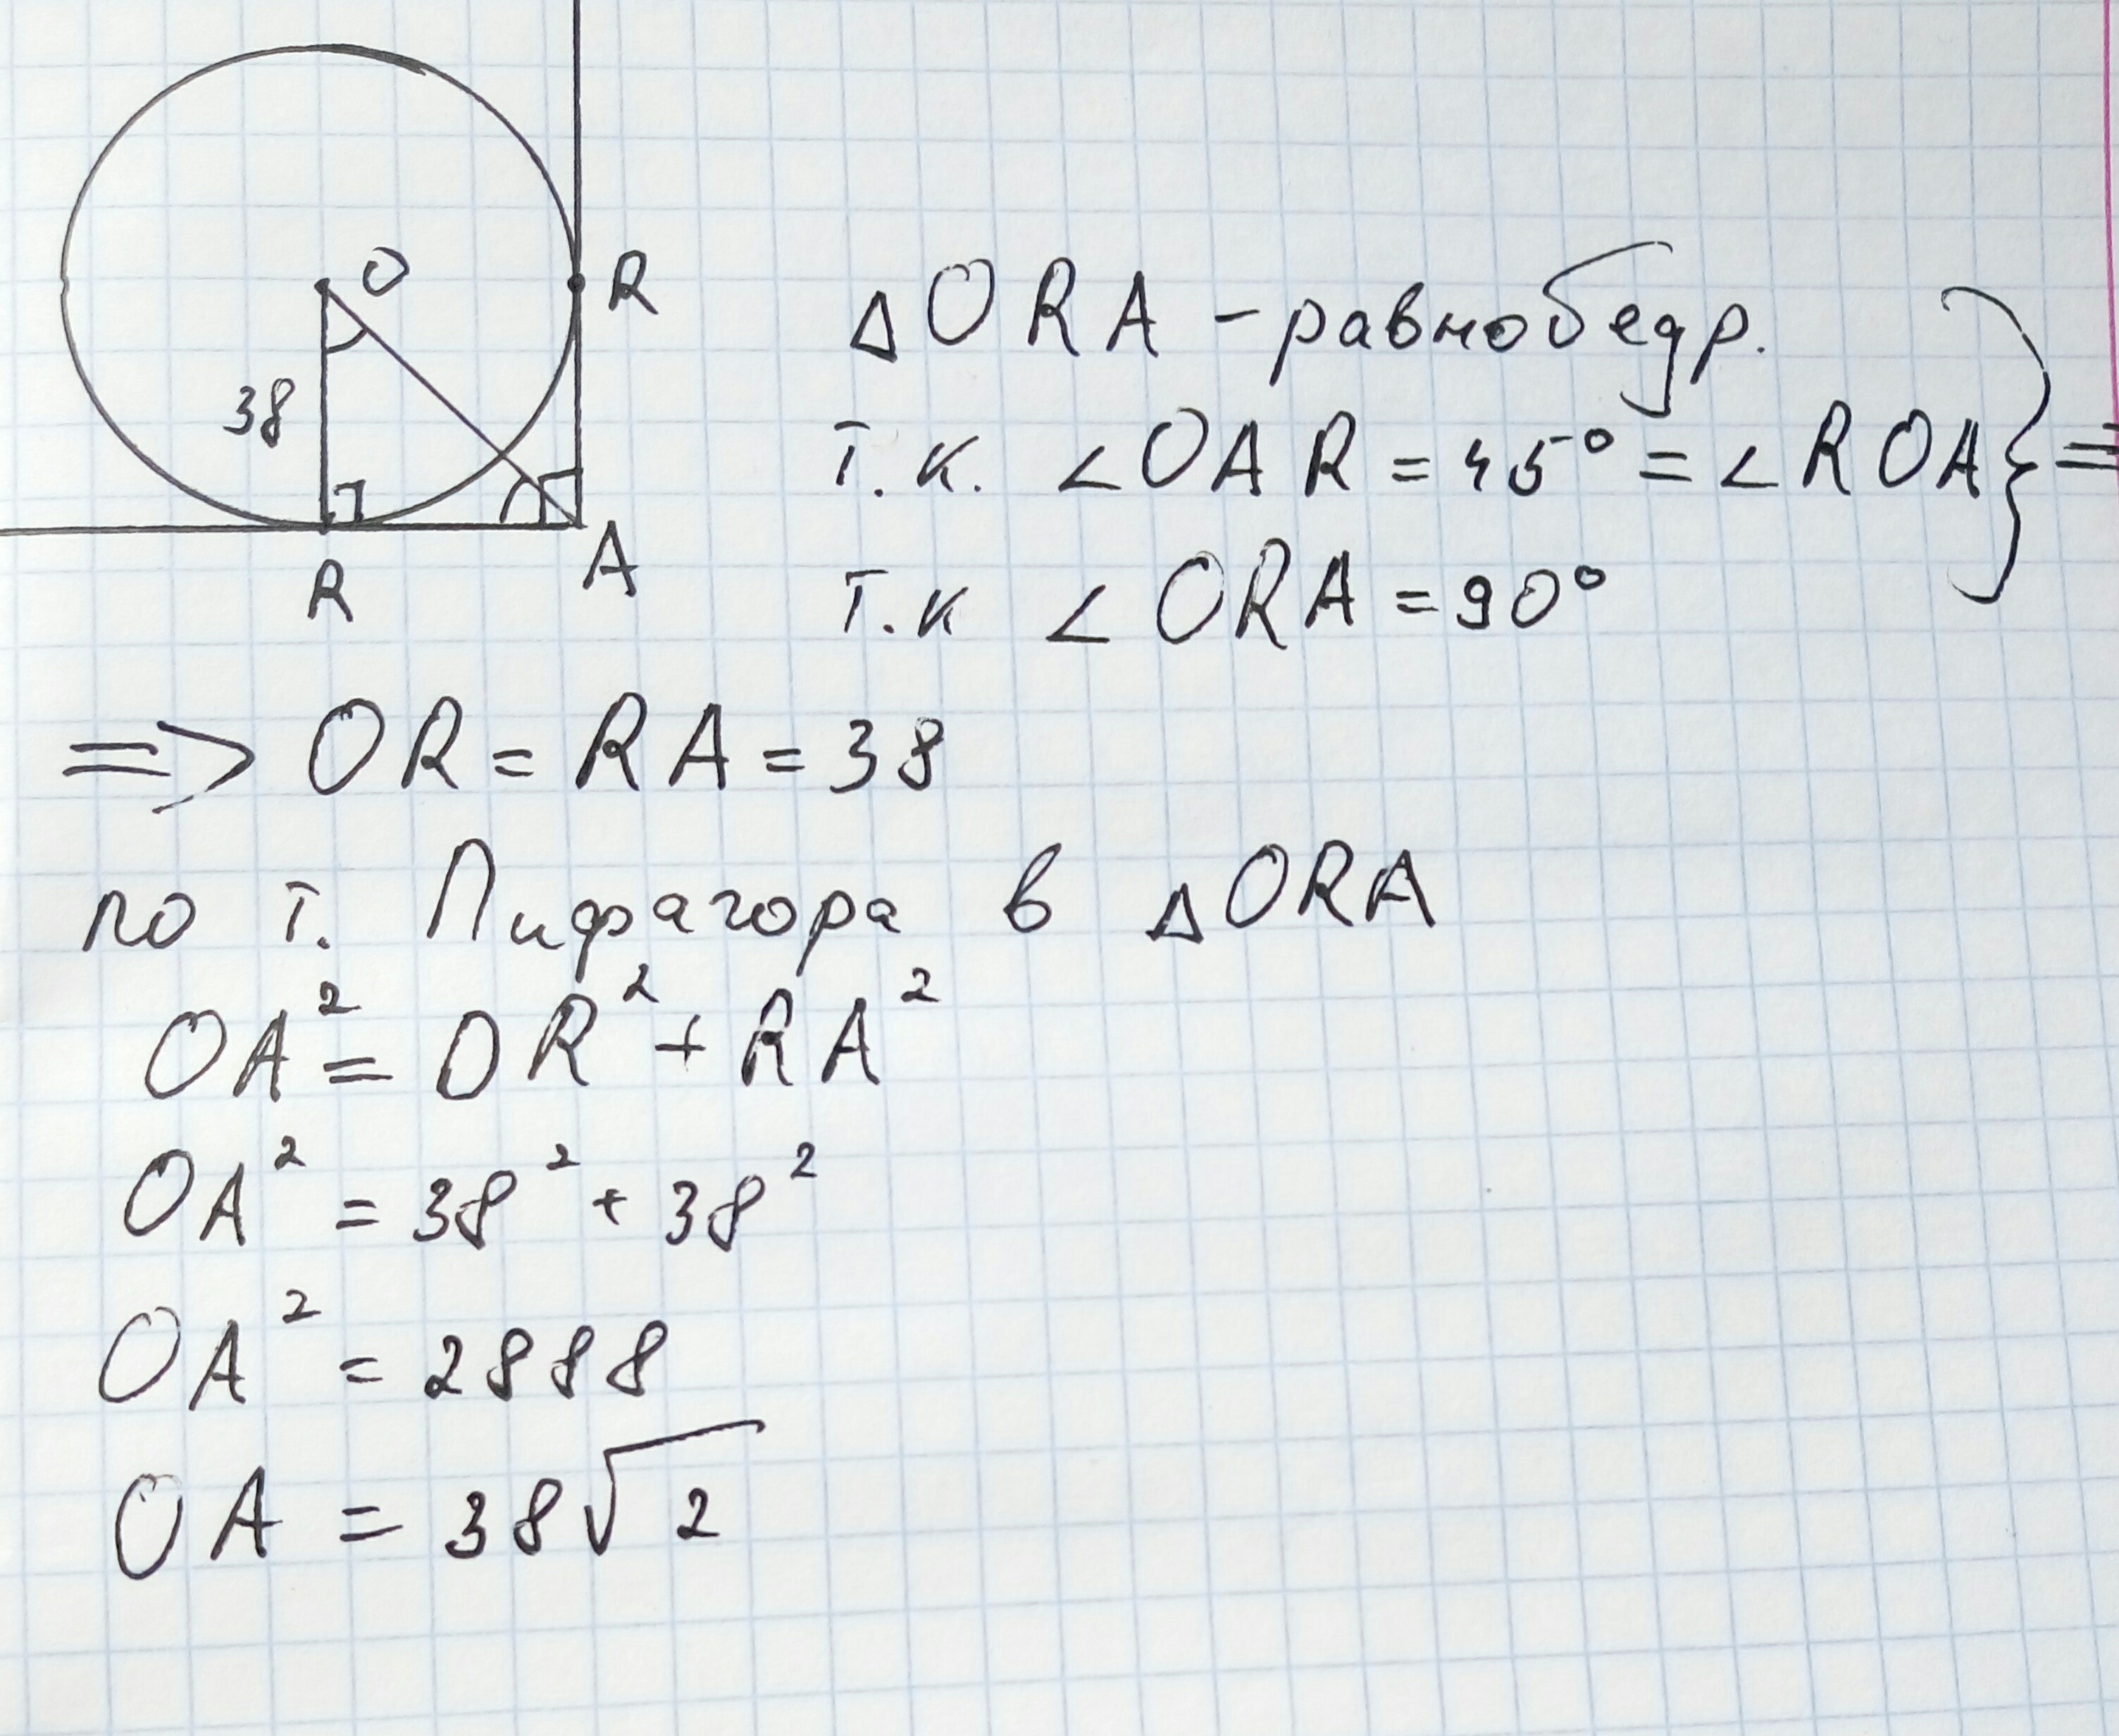 O
R
38
R
A
ΔORA - равнобедр.
т.к. ∠OAR = 45° = ∠ROA } =
т.к ∠ORA = 90°
=> OR = RA = 38
по т. Пифагора в ΔORA
OA² = OR² + RA²
OA² = 38² + 38²
OA² = 2888
OA = 38√2